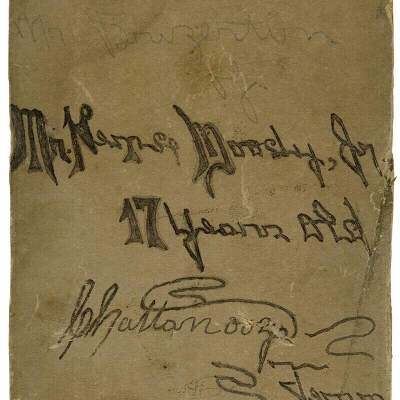 Mr.
by
Mr. Mosby, Jr
17 Years old
Chattanooga
Tenn